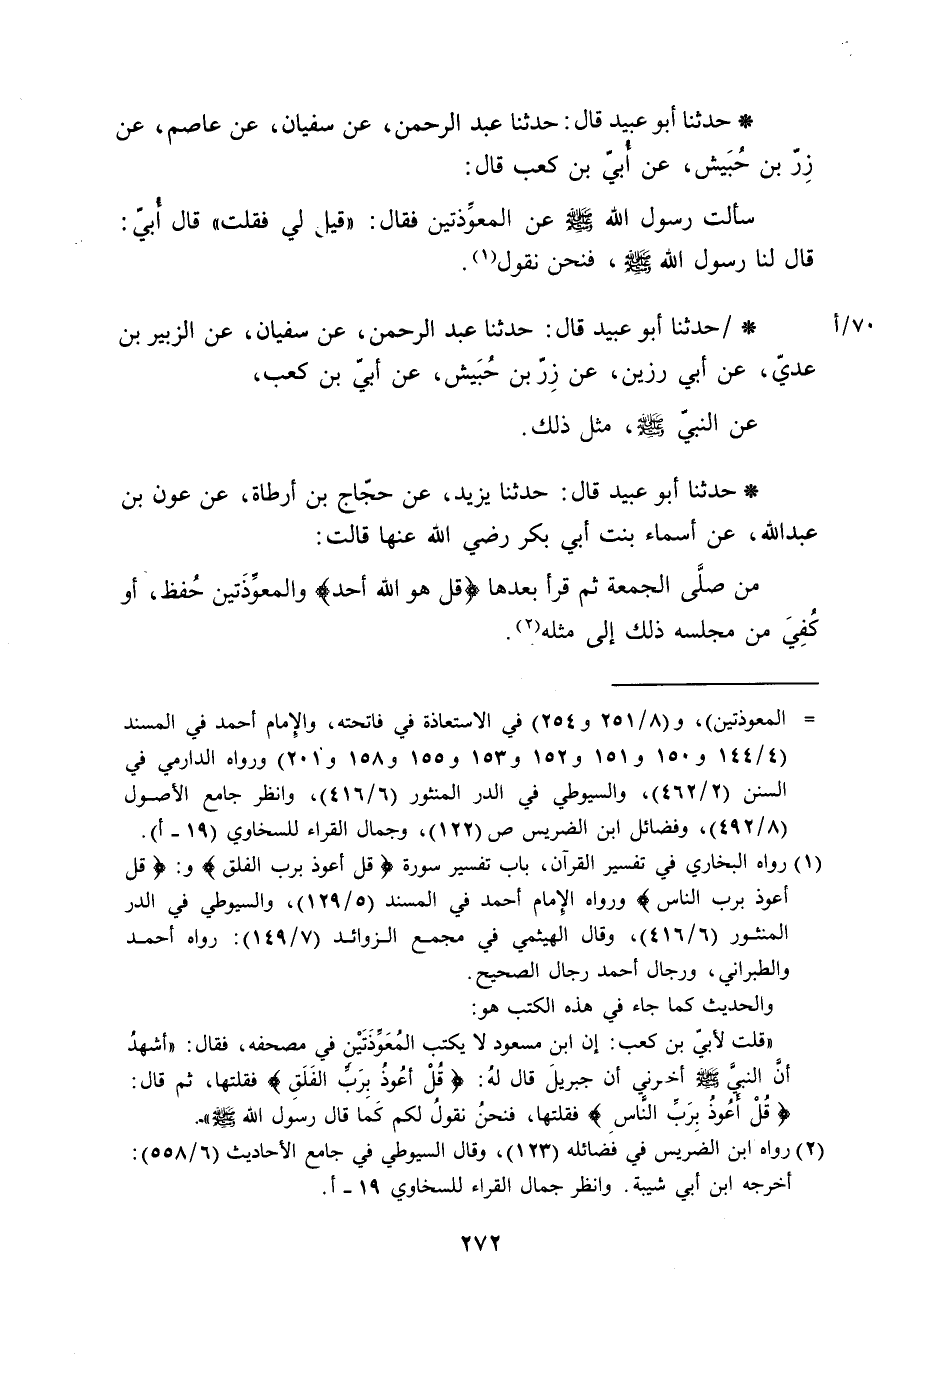 * حدثنا أبو عبيد قال: حدثنا عبد الرحمن، عن سفيان، عن عاصم، عن
زِرّ بن حُبَيش، عن أُبيّ بن كعب قال:
سألت رسول الله ﷺ عن المعوِّذتين فقال: «قيل لي فقلت» قال أُبيّ:
قال لنا رسول الله ﷺ، فنحن نقول(١).
٧٠/أ * /حدثنا أبو عبيد قال: حدثنا عبد الرحمن، عن سفيان، عن الزبير بن
عديّ، عن أبي رزين، عن زِرّ بن حُبَيش، عن أبيّ بن كعب،
عن النبيّ ﷺ، مثل ذلك.
* حدثنا أبو عبيد قال: حدثنا يزيد، عن حجّاج بن أرطاة، عن عون بن
عبدالله، عن أسماء بنت أبي بكر رضي الله عنها قالت:
من صلَّى الجمعة ثم قرأ بعدها ﴿قل هو الله أحد﴾ والمعوِّذَتين حُفظ، أو
كُفِيَ من مجلسه ذلك إلى مثله(٢).
= المعوذتين)، و(٢٥١/٨ و٢٥٤) في الاستعاذة في فاتحته، والإمام أحمد في المسند
(١٤٤/٤ و١٥٠ و١٥١ و١٥٢ و١٥٣ و١٥٥ و١٥٨ و٢٠١) ورواه الدارمي في
السنن (٤٦٢/٢)، والسيوطي في الدر المنثور (٤١٦/٦)، وانظر جامع الأصول
(٤٩٢/٨)، وفضائل ابن الضريس ص (١٢٢)، وجمال القراء للسخاوي (١٩ - أ).
(١) رواه البخاري في تفسير القرآن، باب تفسير سورة ﴿ قل أعوذ برب الفلق ﴾ و: ﴿ قل
أعوذ برب الناس ﴾ ورواه الإمام أحمد في المسند (١٢٩/٥)، والسيوطي في الدر
المنثور (٤١٦/٦)، وقال الهيثمي في مجمع الزوائد (١٤٩/٧): رواه أحمد
والطبراني، ورجال أحمد رجال الصحيح.
والحديث كما جاء في هذه الكتب هو:
«قلت لأبيّ بن كعب: إن ابن مسعود لا يكتب المُعَوِّذَتَيْنِ في مصحفه، فقال: «أشهدُ
أنَّ النبيَّ ﷺ أخبرني أن جبريلَ قال لهُ: ﴿ قُلْ أعُوذُ بِرَبِّ الفَلَقِ ﴾ فقلتها، ثم قال:
﴿ قُلْ أَعُوذُ بِرَبِّ النَّاسِ ﴾ فقلتها، فنحنُ نقولُ لكم كَما قال رسول الله ﷺ».
(٢) رواه ابن الضريس في فضائله (١٢٣)، وقال السيوطي في جامع الأحاديث (٥٥٨/٦):
أخرجه ابن أبي شيبة. وانظر جمال القراء للسخاوي ١٩ - أ.
٢٧٢